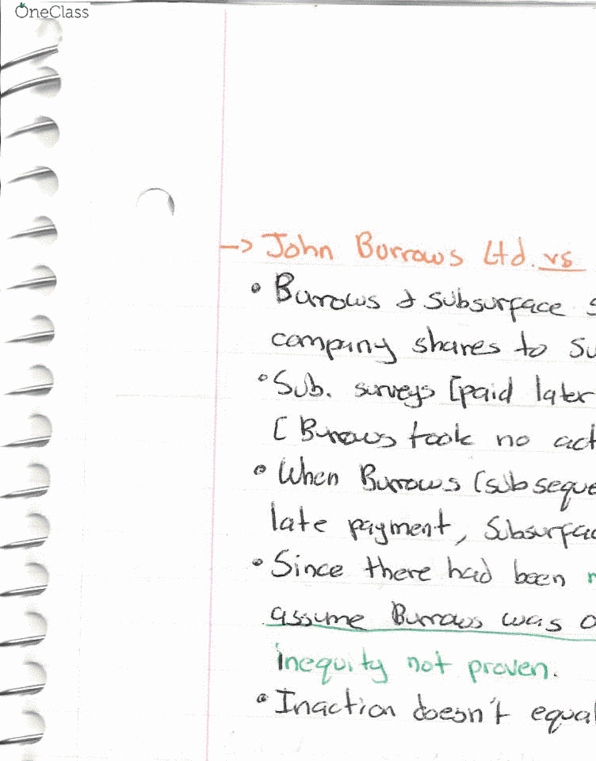 OneClass
-> John Burrows Ltd. vs
• Burrows & subsurface
company shares to
• Sub. surveys [paid later
[Burrows took no
• When Burrows (subseque
late payment, Subsurfac
• Since there had been
assume Burrows was
inequity not proven.
• Inaction doesn't equal